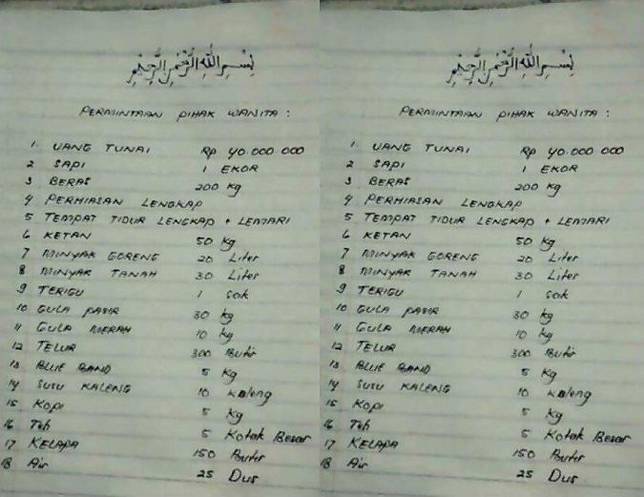 بِسْمِ اللهِ الرَّحْمٰنِ الرَّحِيْمِ
PERMINTAAN PIHAK WANITA :
1. UANG TUNAI Rp 40.000.000
2 SAPI 1 EKOR
3 BERAS 200 Kg
4 PERHIASAN LENGKAP
5 TEMPAT TIDUR LENGKAP + LEMARI
6 KETAN 50 Kg
7 MINYAK GORENG 20 Liter
8 MINYAK TANAH 30 Liter
9 TERIGU 1 Sak
10 GULA PASIR 30 Kg
11 GULA MERAH 10 Kg
12 TELUR 300 Butir
13 BLUE BAND 5 Kg
14 SUSU KALENG 10 Kaleng
15 Kopi 5 Kg
16 Teh 5 Kotak Besar
17 KELAPA 150 Butir
18 Air 25 Dus
بِسْمِ اللهِ الرَّحْمٰنِ الرَّحِيْمِ
PERMINTAAN PIHAK WANITA :
1. UANG TUNAI Rp 40.000.000
2 SAPI 1 EKOR
3 BERAS 200 Kg
4 PERHIASAN LENGKAP
5 TEMPAT TIDUR LENGKAP + LEMARI
6 KETAN 50 Kg
7 MINYAK GORENG 20 Liter
8 MINYAK TANAH 30 Liter
9 TERIGU 1 Sak
10 GULA PASIR 30 Kg
11 GULA MERAH 10 Kg
12 TELUR 300 Butir
13 BLUE BAND 5 Kg
14 SUSU KALENG 10 Kaleng
15 Kopi 5 Kg
16 Teh 5 Kotak Besar
17 KELAPA 150 Butir
18 Air 25 Dus